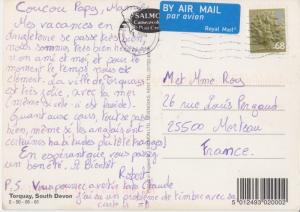 Coucou Papy, Mamy
Mes vacances en
Angleterre se passe très bien
nous sommes très bien
mon ami et moi et pour le
moment le temps nous est
clément. La ville de Torquay
est très jolie, avec la mer
(même si elle a est froide).
Quant aux cours, tout se passe
bien, même si les anglais ont
certaines habitudes
En espérant que vous passez
un bon été. A Bientôt
Robert
P.S. Vous pouvez avertir Claude
j'ai eu un problème de timbre avec sa
carte
SALMON
BY AIR MAIL
par avion
Royal Mail
68
M et Mme Ros
26 rue Louis Pergaud
25500 Morteau
France.
Torquay, South Devon
2-50-06-01
5 012493 020002